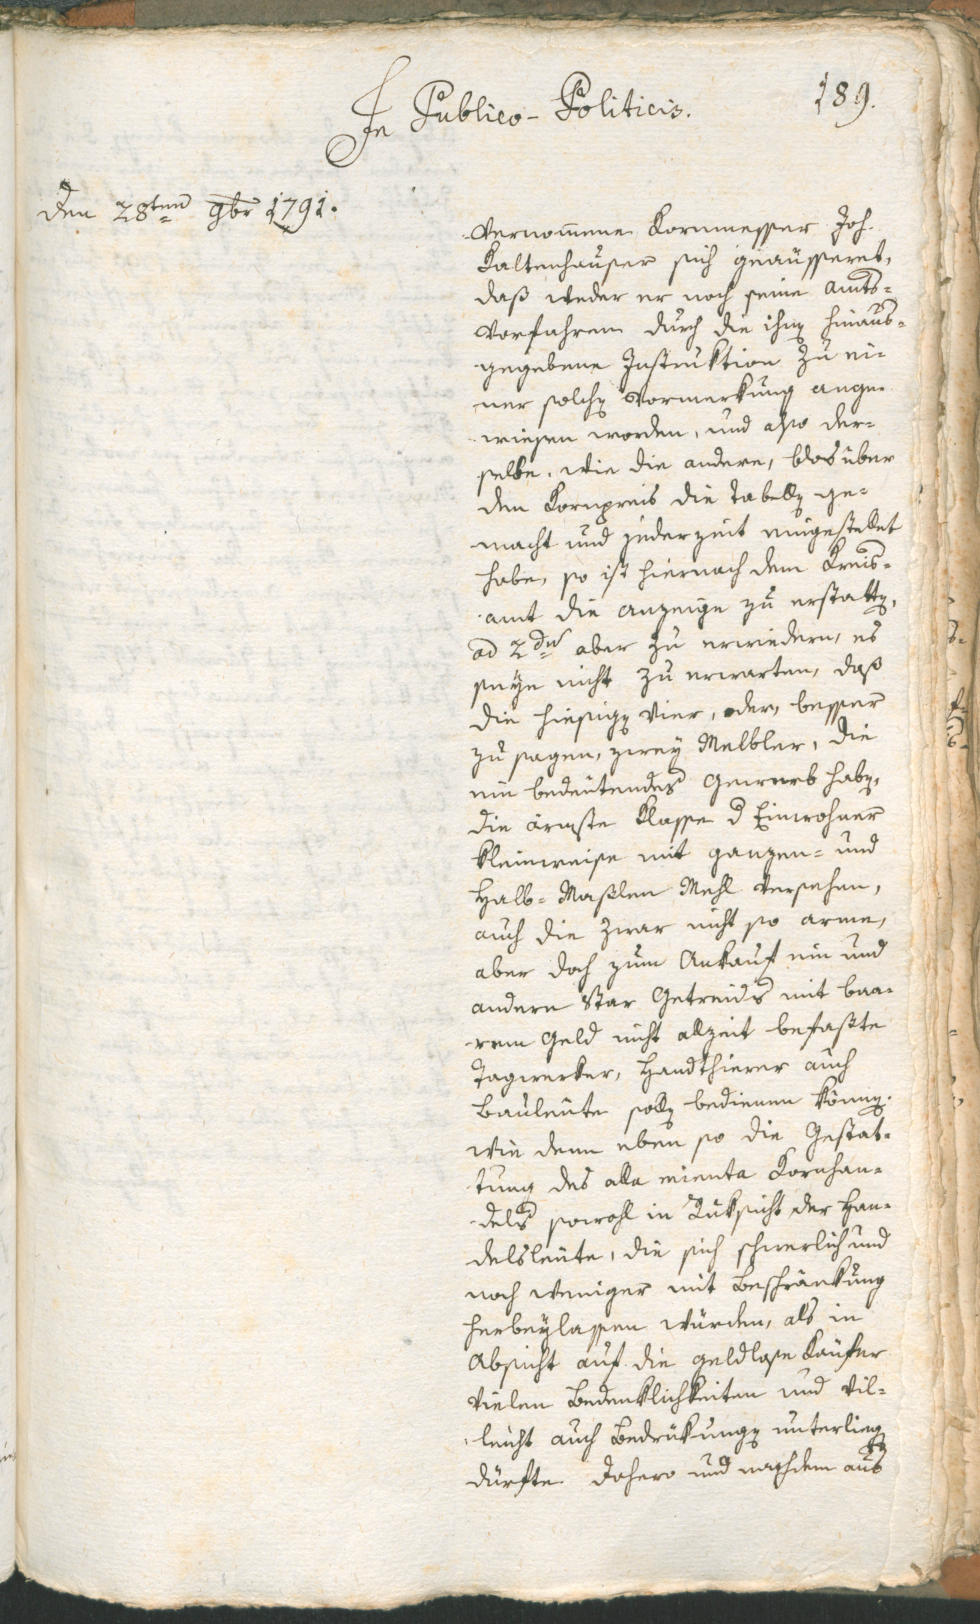 In Publico-Politicis.
189.
Den 28ten 9br 1791.
vernommene Kornmesser Joh.
Kaltenhauser sich geäusseret,
daß weder er noch seine Amts=
vorfahren durch die ihm hinaus=
gegebene Instruktion zu ei=
ner solchen Vormerkung ange=
wiesen worden, und also der=
selbe, wie die andere, blos über
den Kornpreis die Tabelle ge=
macht und jederzeit eingestellet
habe, so ist hiernach dem Kreis=
amt die Anzeige zu erstatten,
ad 2dum aber zu erwiedern, es
seye nicht zu erwarten, daß
die hiesigen vier, oder, besser
zu sagen, zwey Melbler, die
ein bedeutendes Gewerb haben,
die ärmste Klasse d Einwohner
kleinweise mit ganzen= und
Halb=Maßlen Mehl versehen,
auch die zwar nicht so arme,
aber doch zum Ankauf ein und
andern Star Getreids mit baa=
rem Geld nicht allzeit befaßte
Tagwerker, Handthierer auch
Bauleute sollen bedienen können.
Wie denn eben so die Gestat=
tung des alla mienta Kornhan=
dels sowohl in Rüksicht der Han=
delsleute, die sich schwerlich und
noch weniger mit Beschränkung
herbeylassen würden, als in
Absicht auf die geldlose Käufer
vielen Bedenklichkeiten und vil=
leicht auch Bedrükungen unterliegen
dürfte. Dahero und nachdem aus